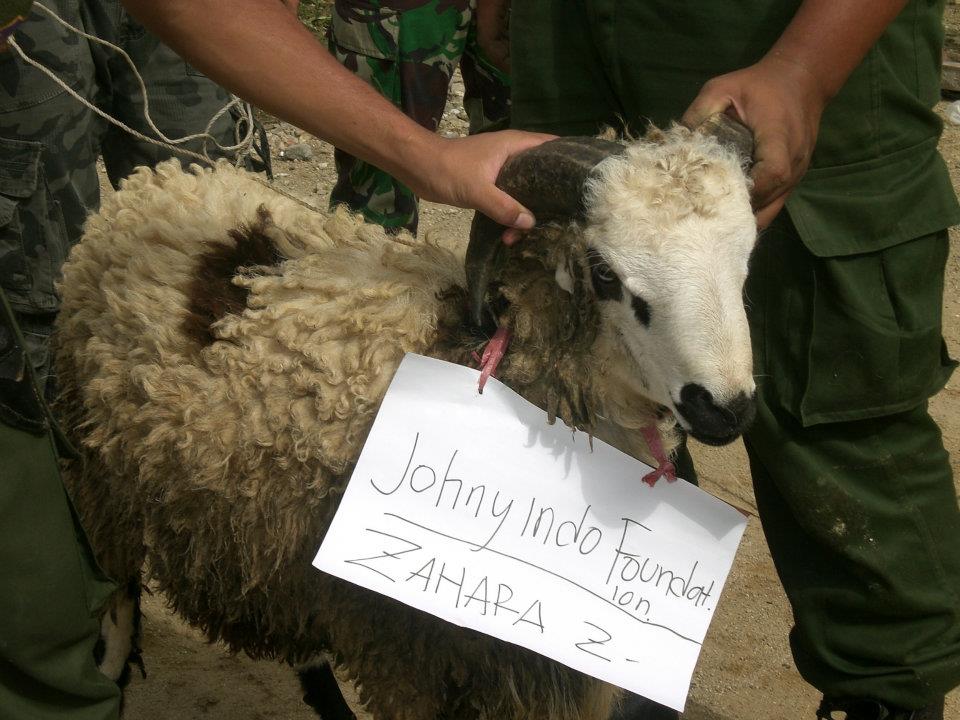 Johny Indo Foundat.
ion.
ZAHARA Z-